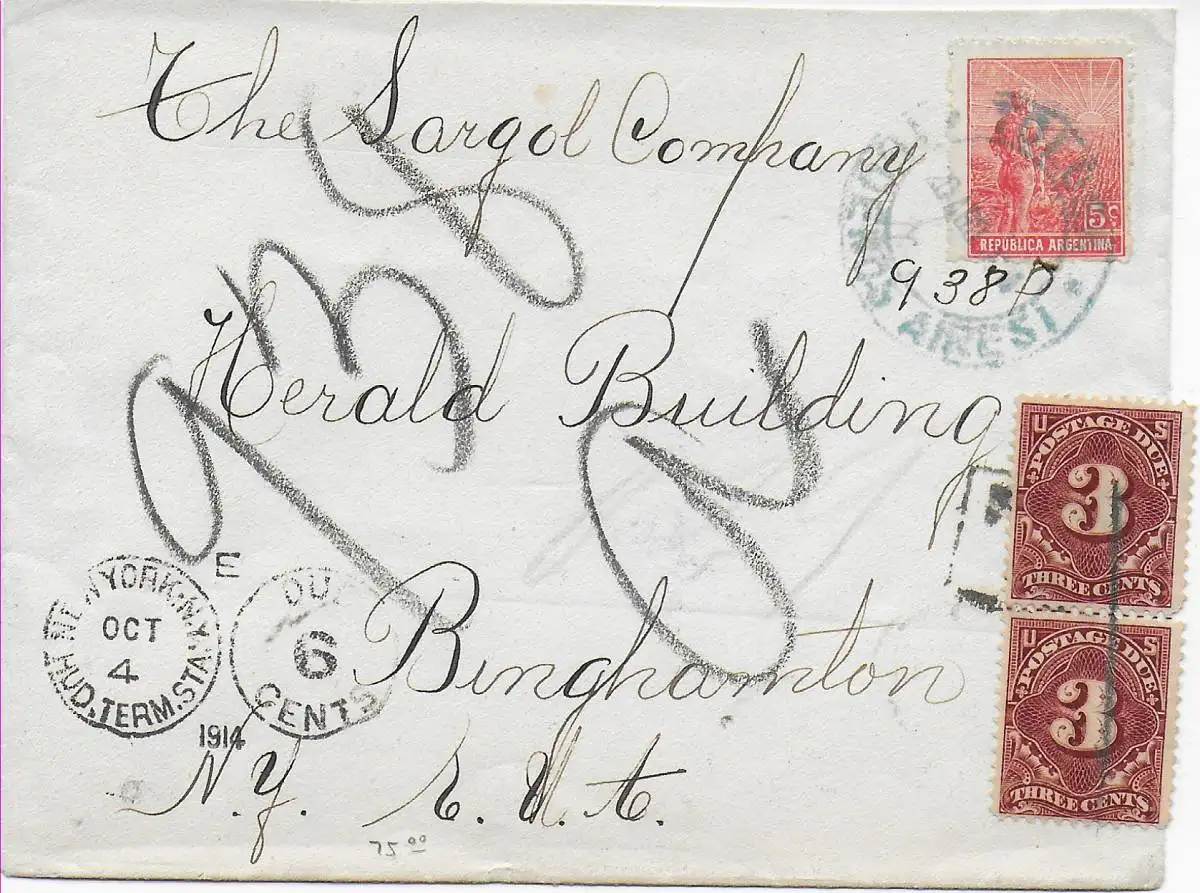 The Sargol Company
5c
REPÚBLICA ARGENTINA
938P
BUENOS AIRES
Herald Building
938P
U S
POSTAGE DUE
3
THREE CENTS
E
NEW YORK, N.Y.
OCT
4
HUD. TERM. STA.
1914
DUE
6
CENTS
Binghamton
U S
POSTAGE DUE
3
THREE CENTS
N.Y. E.U.A.
75 00